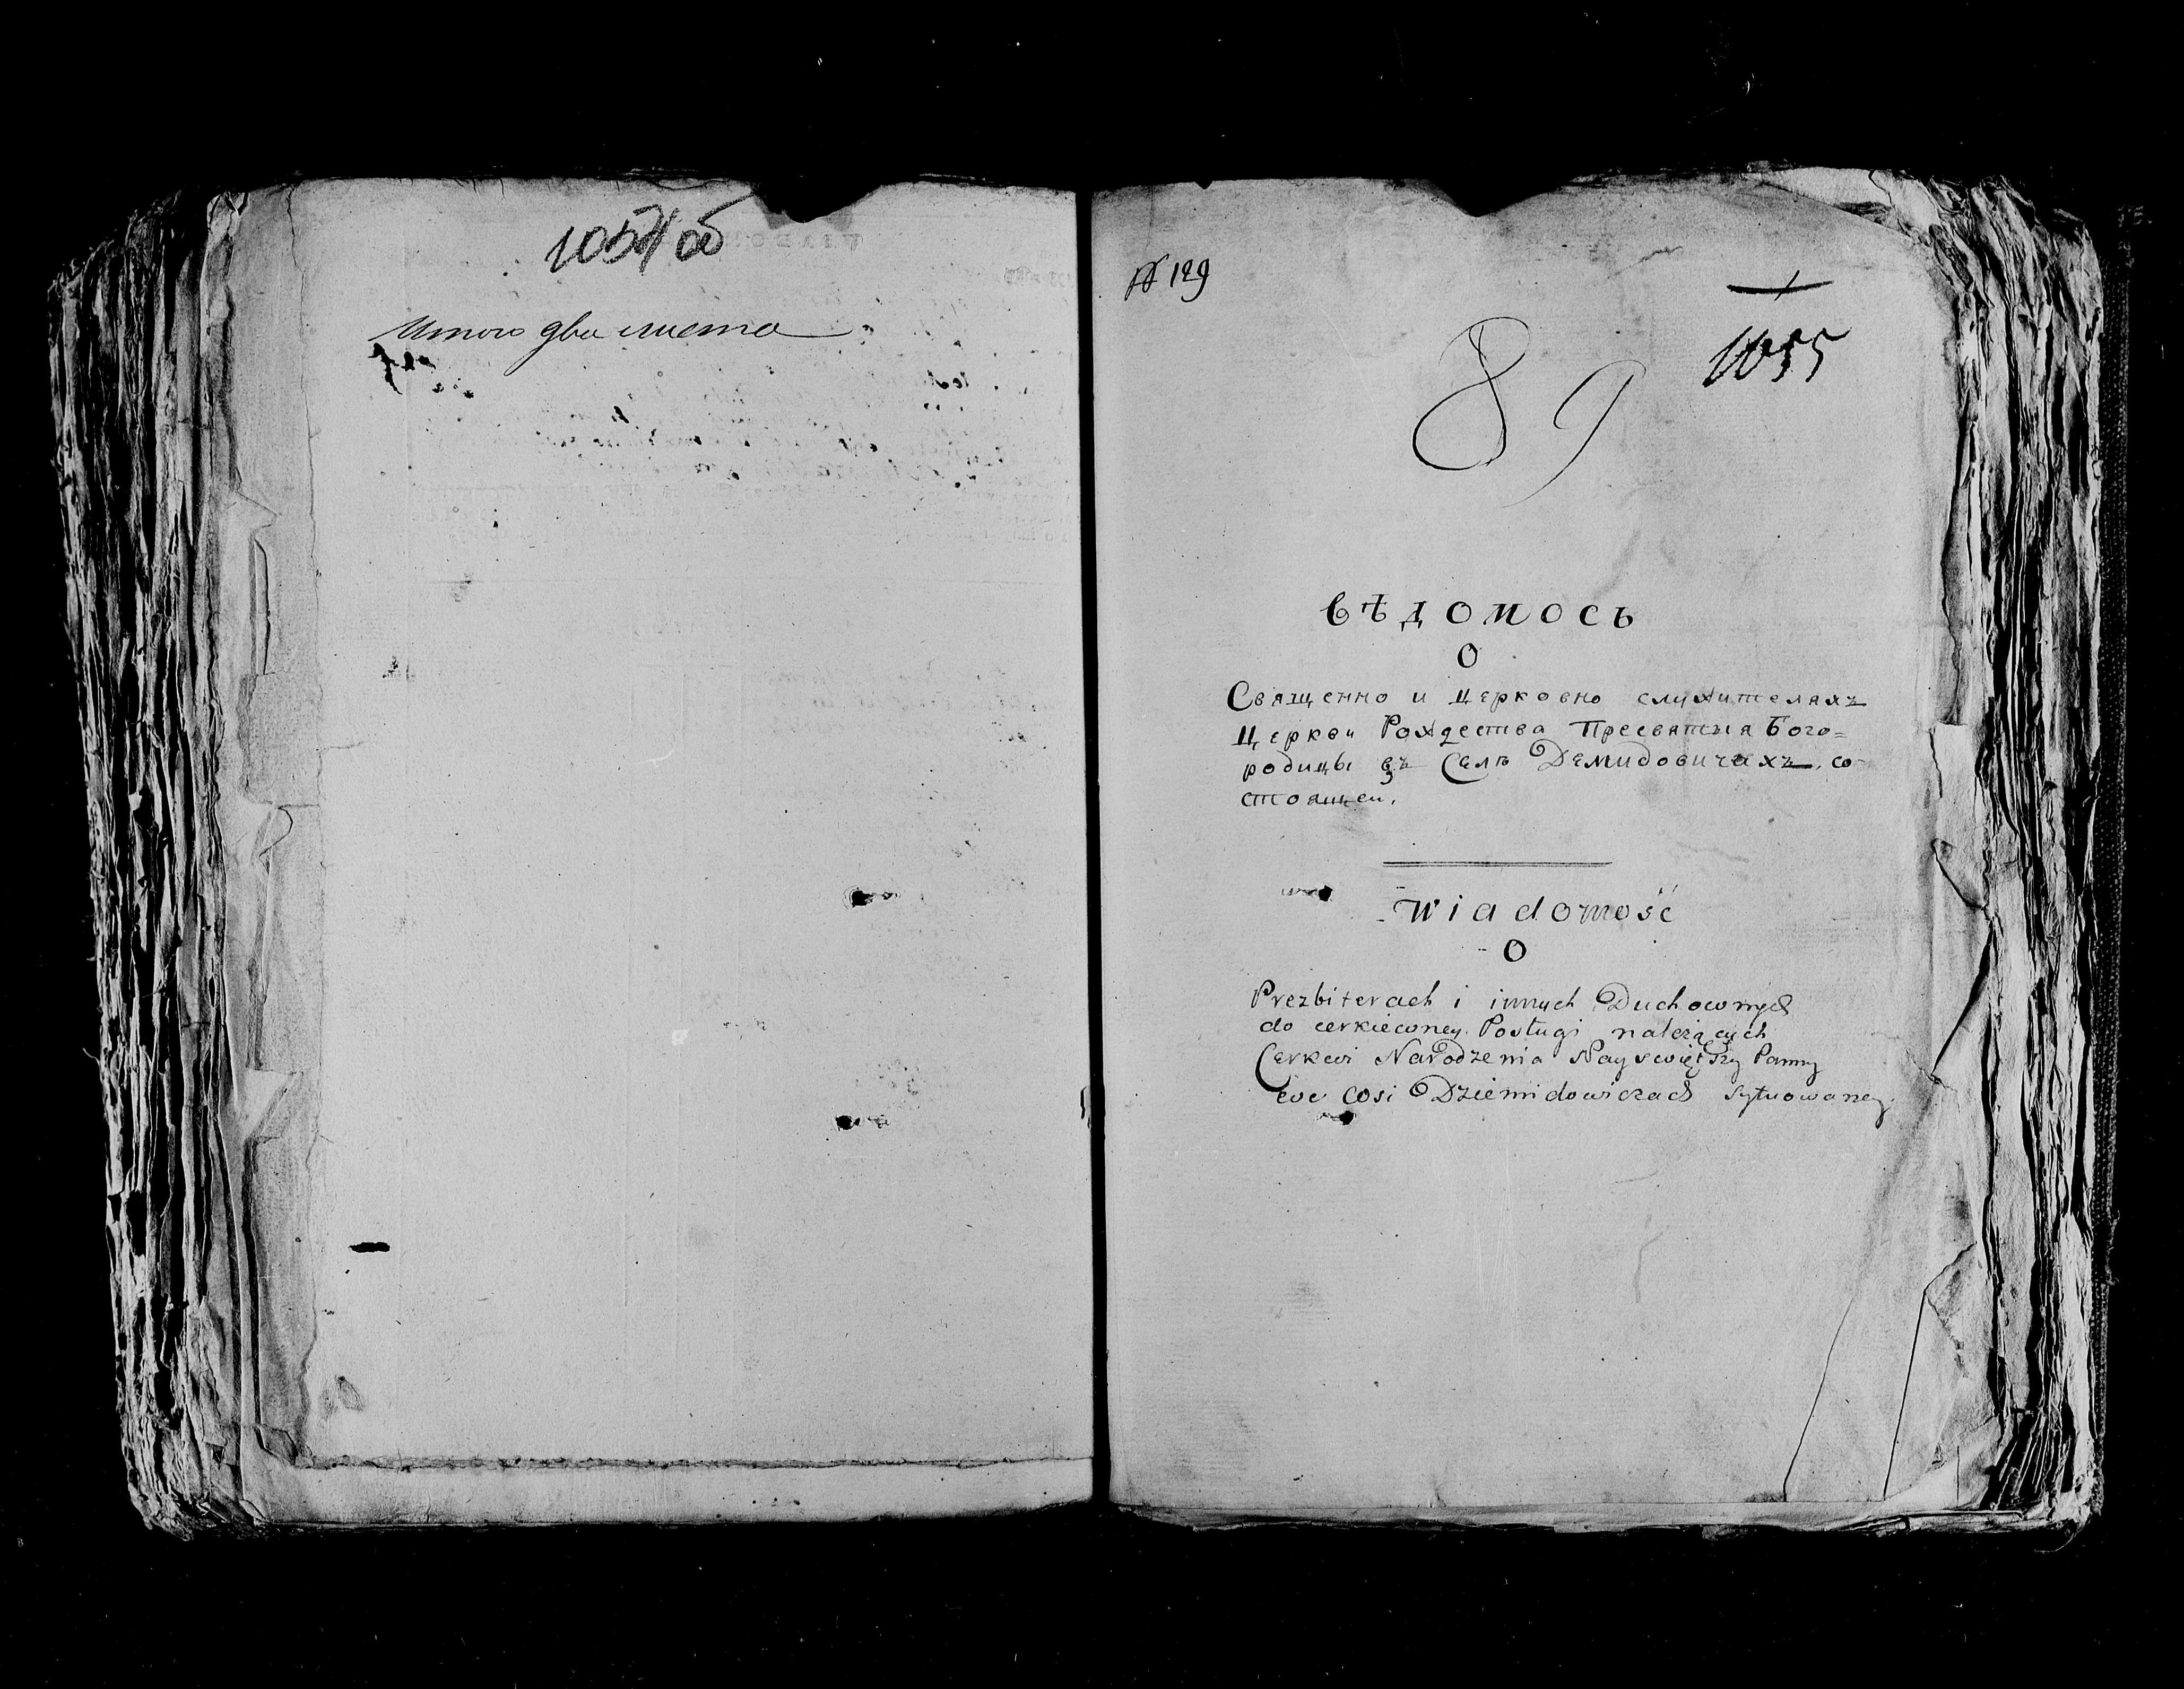 1054 об
Итого два листа
№ 129
1055
89
Вѣдомось
О
Священно и Церковно служителяхъ
Церкви Рождества Пресвятыя Бого=
родицы въ Селѣ Демидовичахъ, со-
стоящеи.
Wiadomość
O
Prezbiterach i innych Duchownych
do cerkiewney Posługi należących
Cerkwi Narodzenia Nayswiętszy Panny
we wsi Dziemidowiczach sytuowaney.